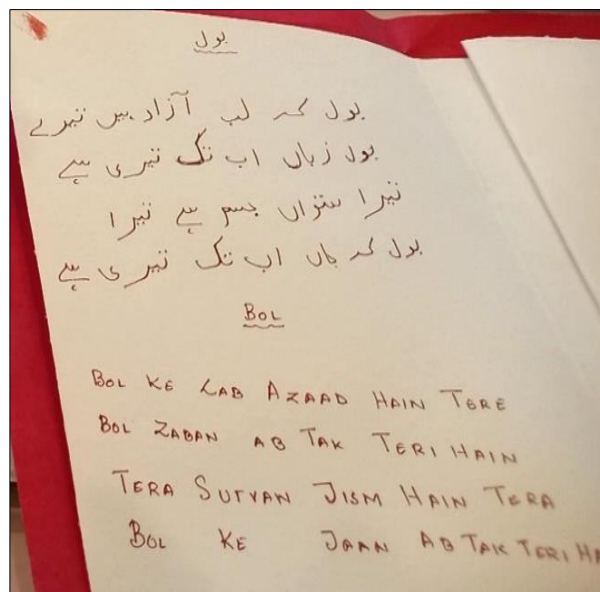 بول
بول کہ لب آزاد ہیں تیرے
بول زباں اب تک تیری ہے
تیرا ستواں جسم ہے تیرا
بول کہ جاں اب تک تیری ہے
BOL
BOL KE LAB AZAAD HAIN TERE
BOL ZABAN AB TAK TERI HAIN
TERA SUTVAN JISM HAIN TERA
BOL KE JAAN AB TAK TERI HA